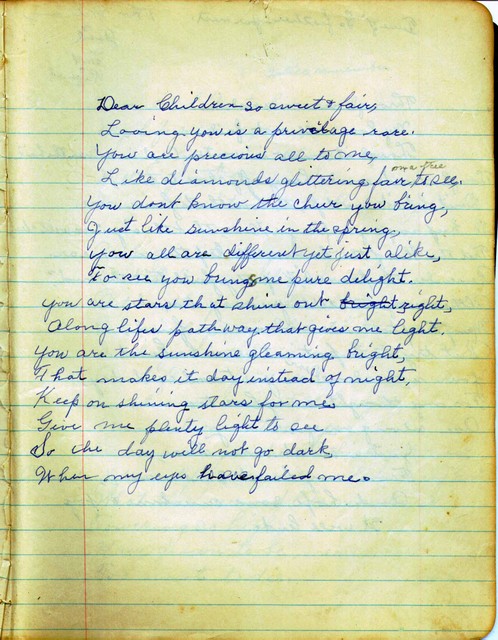 Dear Children so sweet & fair,
Loving you is a privilage rare.
You are precious all to me,
on a tree
Like diamonds glittering fair to see.
You dont know the cheer you bring,
Just like sunshine in the spring,
You all are different yet just alike,
To see you brings me pure delight.
You are stars that shine out bright right,
Along lifes pathway that gives me light.
You are the sunshine gleaming bright,
That makes it day instead of night.
Keep on shining stars for me
Give me plenty light to see
So the day will not go dark
When my eyes have failed me.